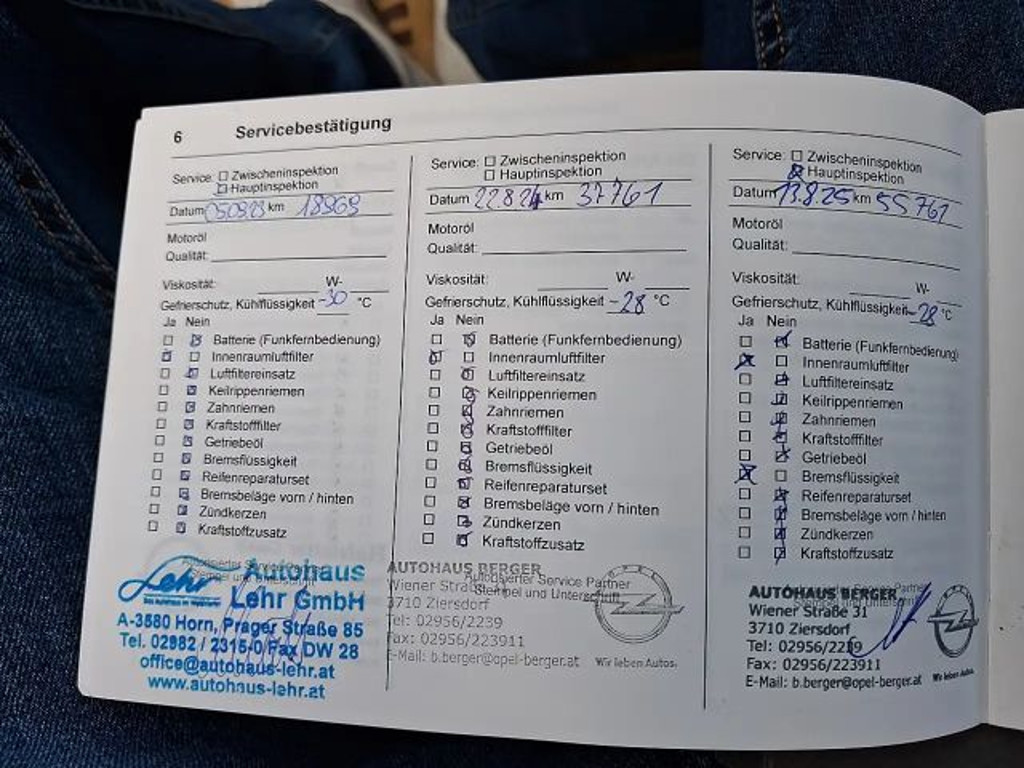 6 Servicebestätigung
Service: ☐ Zwischeninspektion
☐ Hauptinspektion
Datum 05.09.23 km 18969
Motoröl
Qualität:
Viskosität: W-
Gefrierschutz, Kühlflüssigkeit -30 °C
Ja Nein
☐ ☒ Batterie (Funkfernbedienung)
☒ ☐ Innenraumluftfilter
☐ ☒ Luftfiltereinsatz
☐ ☒ Keilrippenriemen
☐ ☒ Zahnriemen
☐ ☒ Kraftstofffilter
☐ ☒ Getriebeöl
☐ ☒ Bremsflüssigkeit
☐ ☒ Reifenreparaturset
☐ ☒ Bremsbeläge vorn / hinten
☐ ☒ Zündkerzen
☐ ☒ Kraftstoffzusatz
Autorisierter Service Partner
Stempel und Unterschrift
Lehr Autohaus
Lehr GmbH
A-3580 Horn, Prager Straße 85
Tel. 02982 / 2315-0 Fax DW 28
office@autohaus-lehr.at
www.autohaus-lehr.at
Service: ☐ Zwischeninspektion
☐ Hauptinspektion
Datum 22.8.24 km 37761
Motoröl
Qualität:
Viskosität: W-
Gefrierschutz, Kühlflüssigkeit -28 °C
Ja Nein
☐ ☒ Batterie (Funkfernbedienung)
☒ ☐ Innenraumluftfilter
☐ ☒ Luftfiltereinsatz
☐ ☒ Keilrippenriemen
☐ ☒ Zahnriemen
☐ ☒ Kraftstofffilter
☐ ☒ Getriebeöl
☐ ☒ Bremsflüssigkeit
☐ ☒ Reifenreparaturset
☐ ☒ Bremsbeläge vorn / hinten
☐ ☒ Zündkerzen
☐ ☒ Kraftstoffzusatz
Autorisierter Service Partner
Stempel und Unterschrift
AUTOHAUS BERGER
Wiener Straße 31
3710 Ziersdorf
Tel: 02956/2239
Fax: 02956/223911
E-Mail: b.berger@opel-berger.at
OPEL
Wir leben Autos.
Service: ☐ Zwischeninspektion
☒ Hauptinspektion
Datum 13.8.25 km 55761
Motoröl
Qualität:
Viskosität: W-
Gefrierschutz, Kühlflüssigkeit -28 °C
Ja Nein
☐ ☒ Batterie (Funkfernbedienung)
☒ ☐ Innenraumluftfilter
☐ ☒ Luftfiltereinsatz
☐ ☒ Keilrippenriemen
☐ ☒ Zahnriemen
☐ ☒ Kraftstofffilter
☐ ☒ Getriebeöl
☒ ☐ Bremsflüssigkeit
☐ ☒ Reifenreparaturset
☐ ☒ Bremsbeläge vorn / hinten
☐ ☒ Zündkerzen
☐ ☒ Kraftstoffzusatz
Autorisierter Service Partner
Stempel und Unterschrift
AUTOHAUS BERGER
Wiener Straße 31
3710 Ziersdorf
Tel: 02956/2239
Fax: 02956/223911
E-Mail: b.berger@opel-berger.at
OPEL
Wir leben Autos.